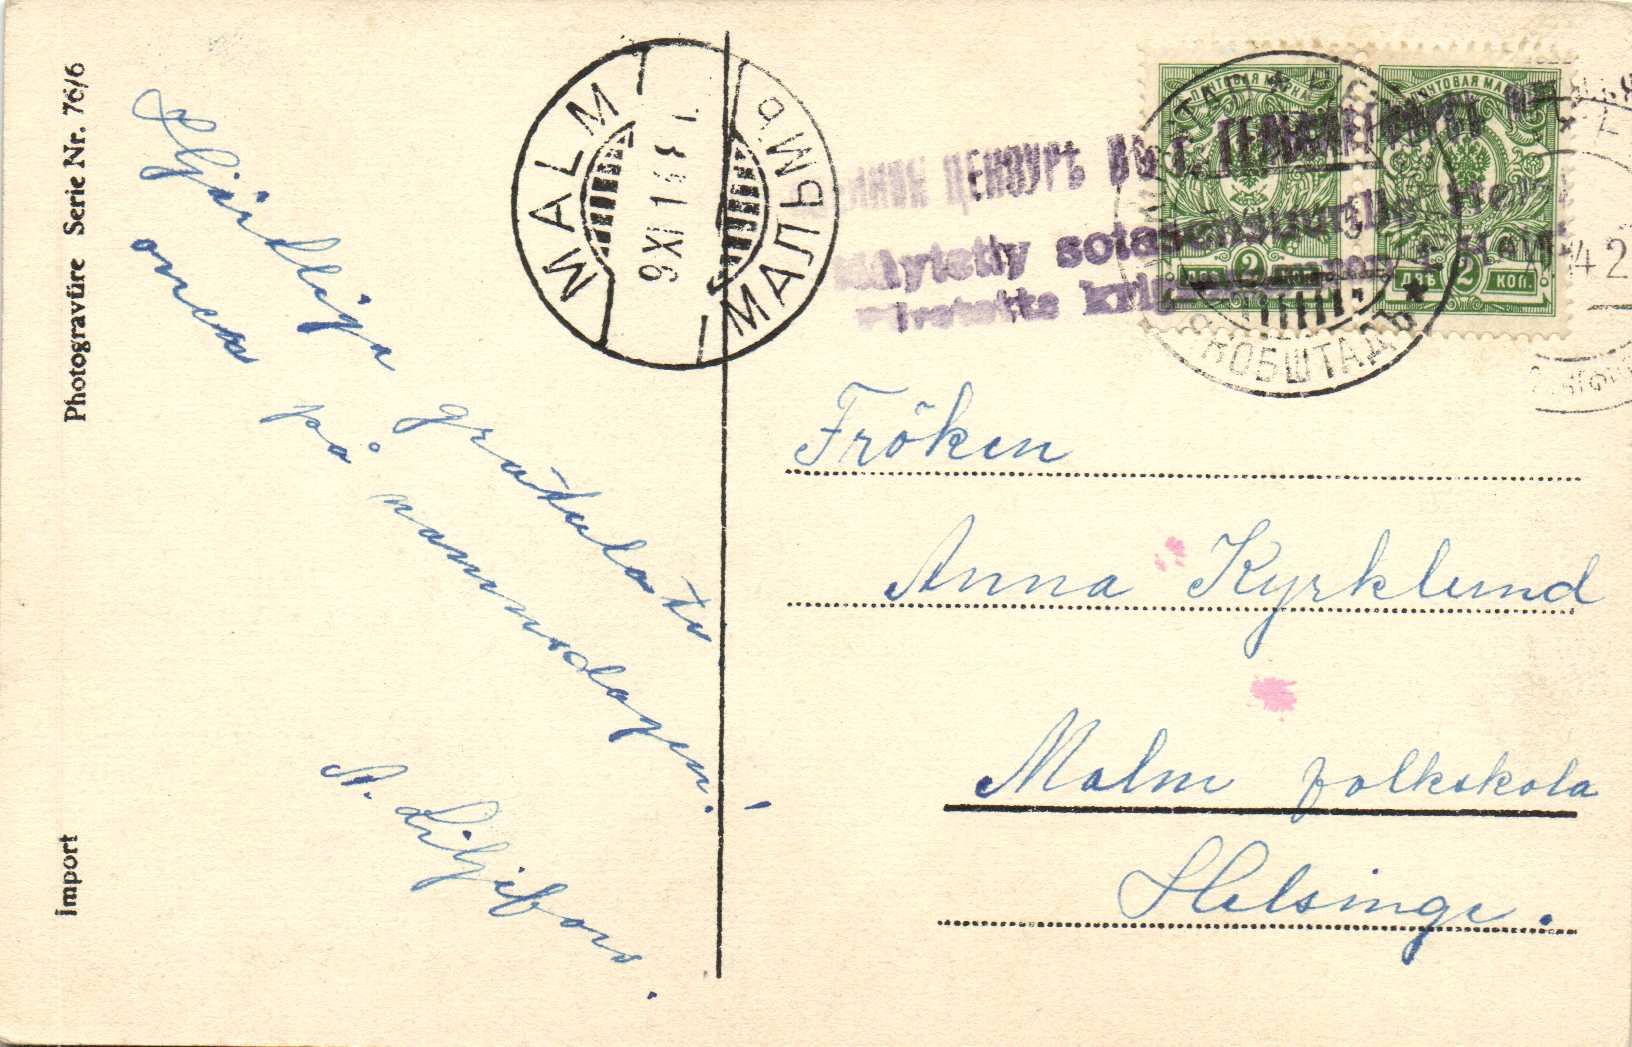 Photogravüre Serie Nr. 76/6
Import
Hjärtliga gratulati
ones på namnsdagen!
A. Liljefors.
MALM
9 XI 14
МАЛЬМЪ
ЦЕНЗУРѢ ВЪ Г.
sotasensuurille
ПОЧТОВАЯ МАРКА
ДВѢ 2 КОП.
ПОЧТОВАЯ МАРКА
ДВѢ 2 КОП.
ЯКОБШТАДЪ
Fröken
Anna Kyrklund
Malm folkskola
Helsinge.